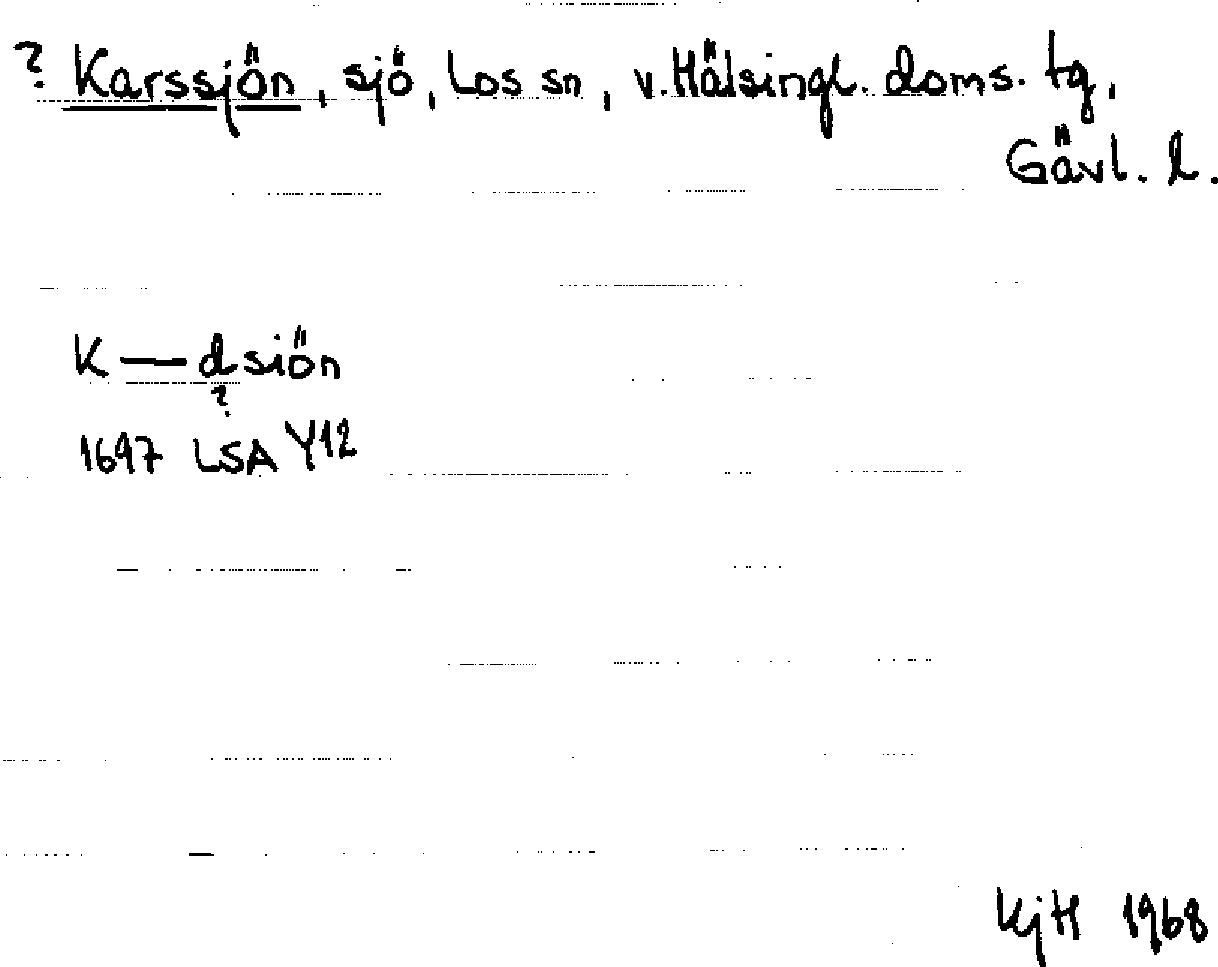 ? Karssjön, sjö, Los sn, v. Hälsingl. doms. tg,
Gävl. l.
K — dsiön
?
1697 LSA Y12
KjH 1968